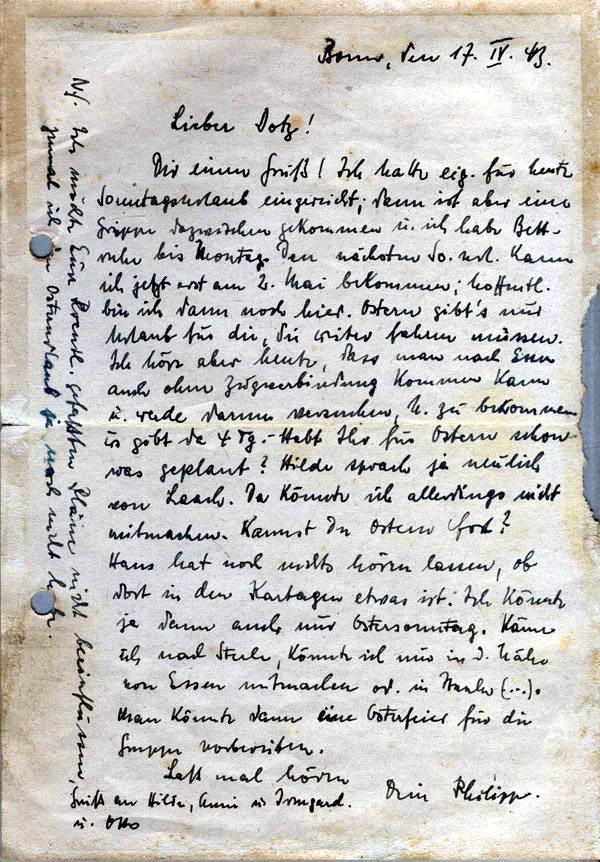 Bonn, den 17. IV. 43.
Lieber Dotz!
Dir einen Gruß! Ich hatte eig. für heute
Sonntagsurlaub eingereicht; dann ist aber eine
Grippe dazwischen gekommen u. ich habe Bett-
ruhe bis Montag. Den nächsten So. url. kann
ich jetzt erst am 2. Mai bekommen; hoffentl.
bin ich dann noch hier. Ostern gibt's nur
Urlaub für die, die weiter fahren müssen.
Ich höre aber heute, dass man nach Essen
auch ohne Zugverbindung kommen kann
u. werde darum versuchen, U. zu bekommen
es gibt da 4 Tg. - Habt Ihr für Ostern schon
was geplant? Hilde sprach ja neulich
von Laach. Da könnte ich allerdings nicht
mitmachen. Kannst Du Ostern fort?
Hans hat noch nichts hören lassen, ob
dort in den Kartagen etwas ist. Ich könnte
ja dann auch nur Ostersonntag. Käme
ich nach Steele, könnte ich nur in d. Nähe
von Essen mitmachen od. in (...).
Man könnte dann eine Osterfeier für die
Gruppe vorbereiten.
Laß mal hören
Dein Philipp.
Gruß an Hilde, Anni u. Irmgard.
u. Otto
NB. Ich möchte Eure gefaßten Pläne nicht beeinflussen,
zumal ich den Osterurlaub ja noch nicht habe.